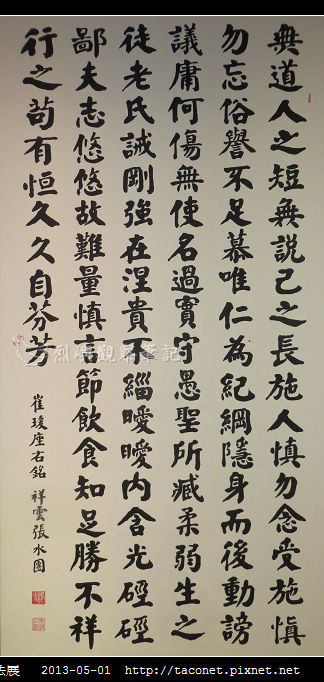 無道人之短無說己之長施人慎勿念受施慎
勿忘俗譽不足慕唯仁為紀綱隱身而後動謗
議庸何傷無使名過實守愚聖所臧柔弱生之
徒老氏誡剛強在涅貴不緇曖曖內含光硜硜
鄙夫志悠悠故難量慎言節飲食知足勝不祥
行之苟有恒久久自芬芳
崔瑗座右銘 祥雲張水
烈嶼觀察筆記
法展 2013-05-01 http://taconet.pixnet.net